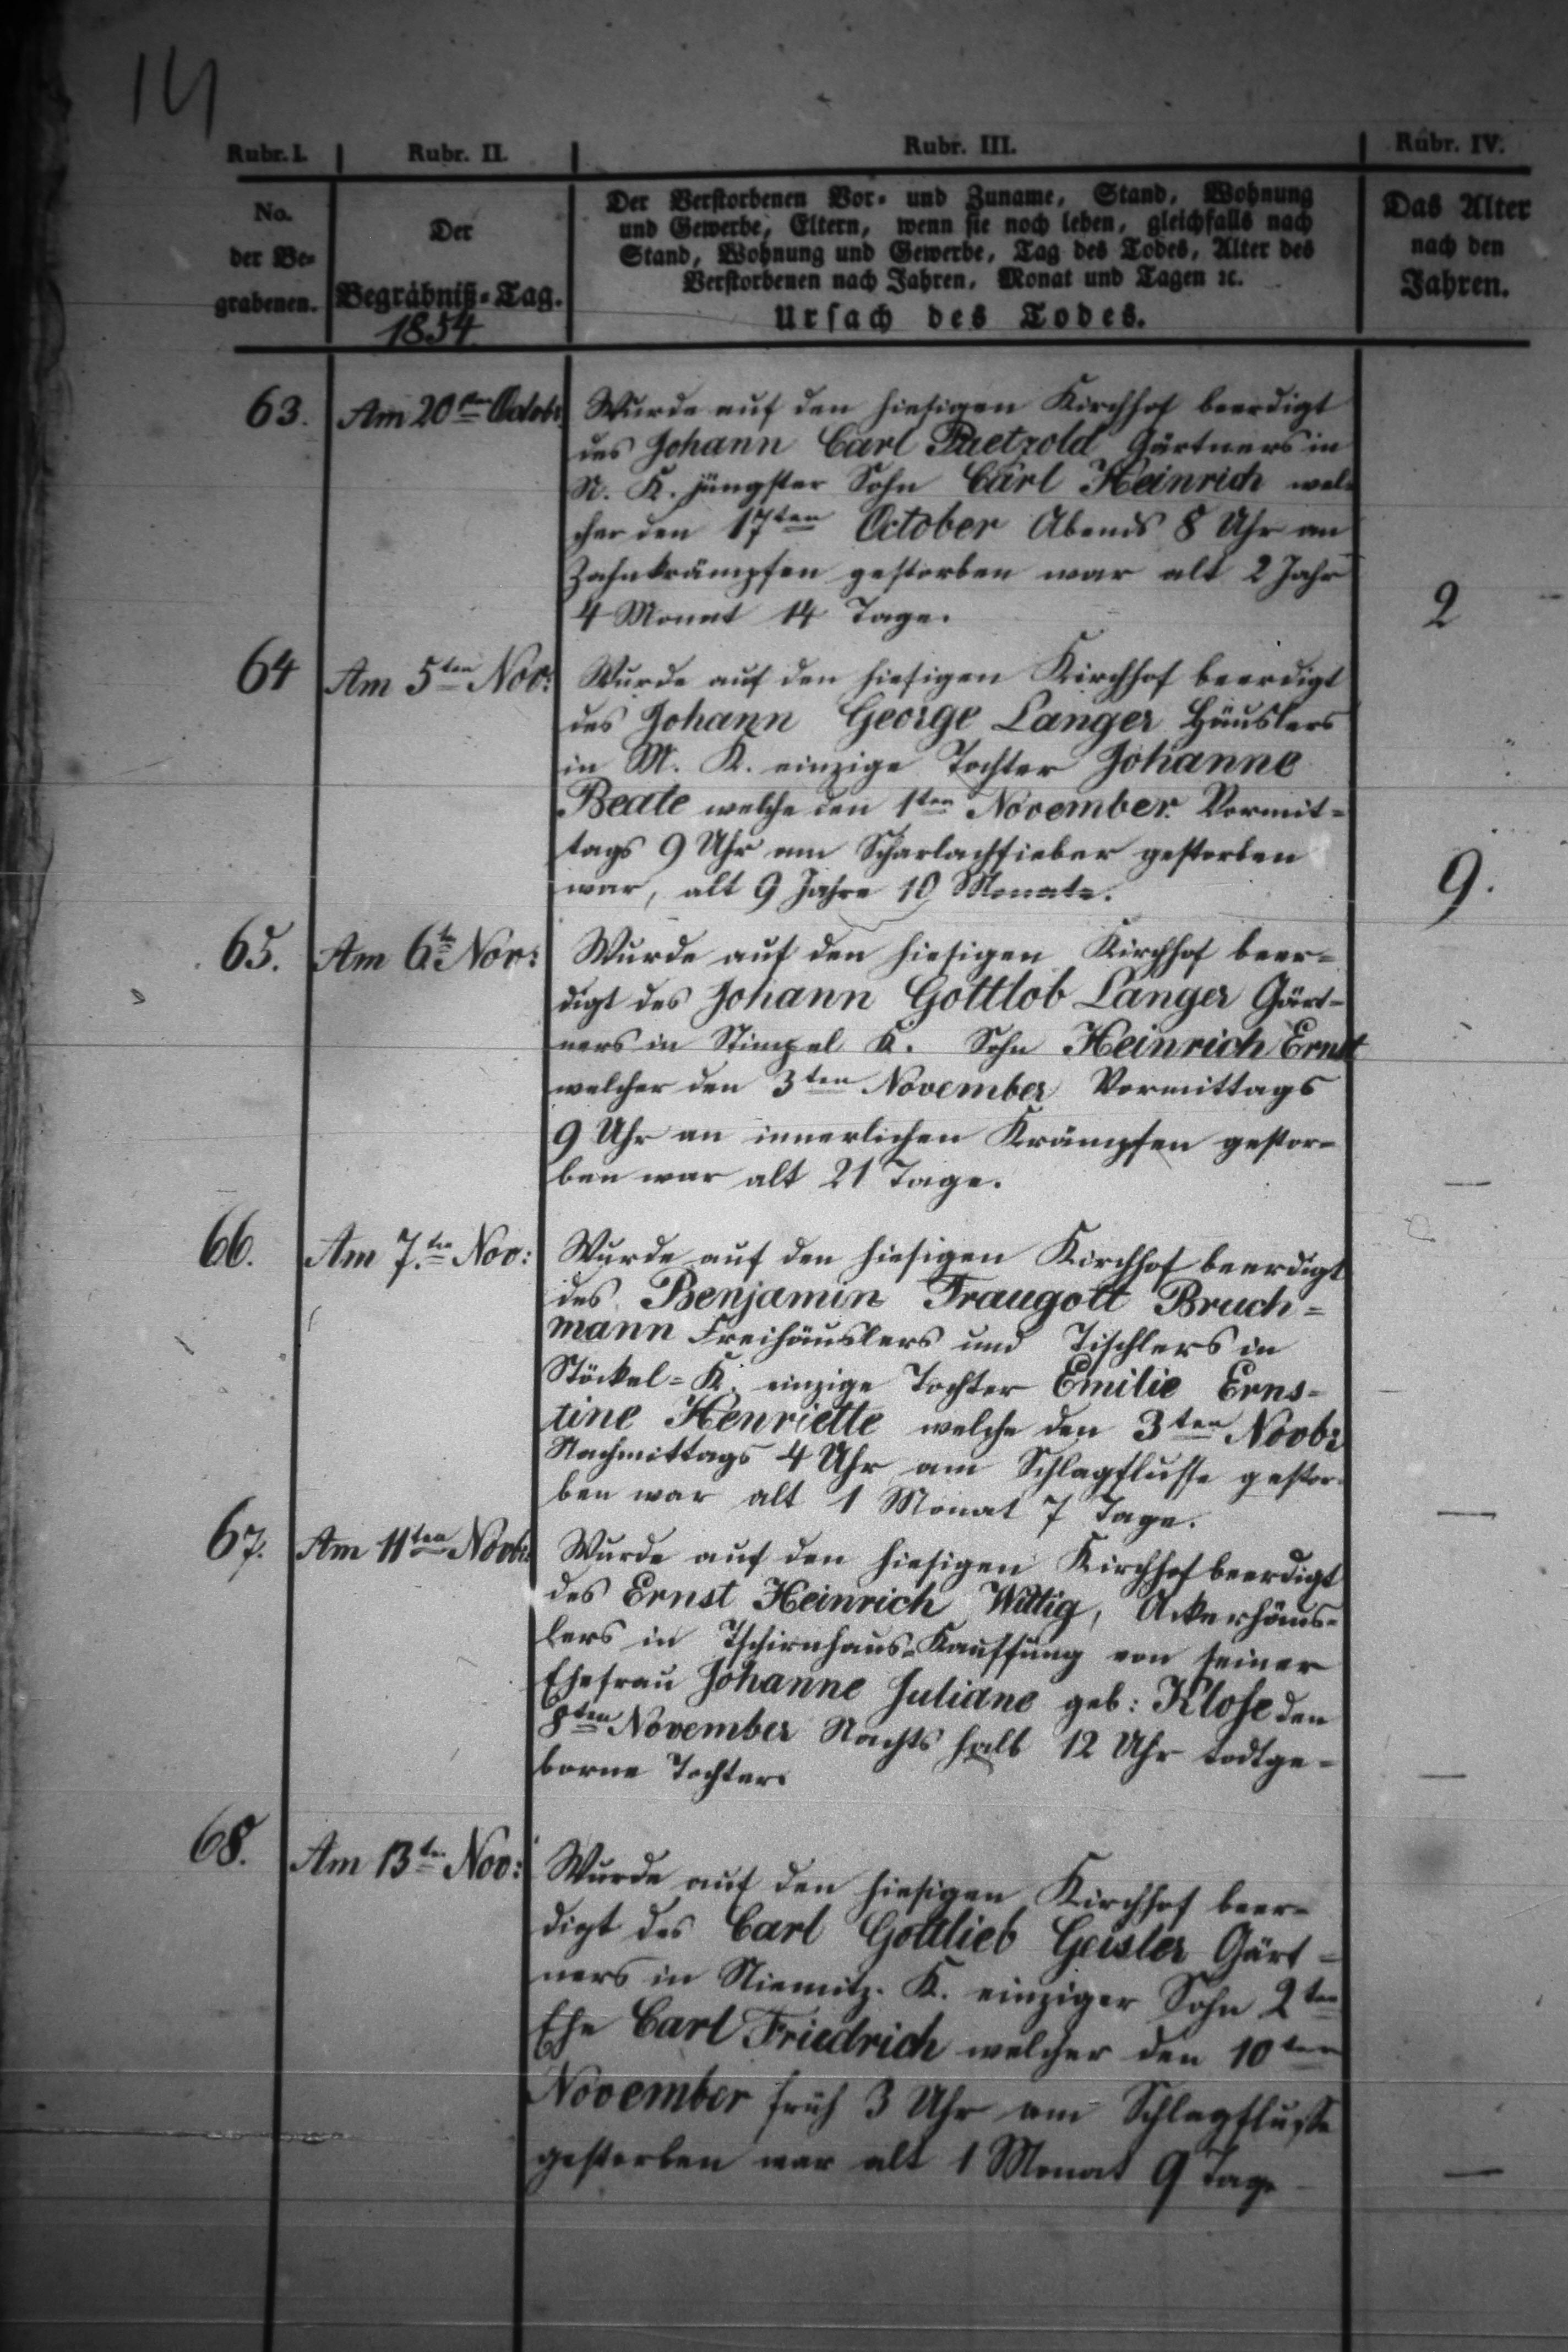 14
Rubr. I. Rubr. II. Rubr. III. Rubr. IV.
No. der Be- grabenen.
Der Begräbniß-Tag. 1854
Der Verstorbenen Vor- und Zuname, Stand, Wohnung
und Gewerbe, Eltern, wenn sie noch leben, gleichfalls nach
Stand, Wohnung und Gewerbe, Tag des Todes, Alter des
Verstorbenen nach Jahren, Monat und Tagen ꝛc.
Ursach des Todes.
Das Alter nach den Jahren.
63. Am 20ten Octobr. Wurde auf den hiesigen Kirchhof beerdigt
des Johann Carl Paetzold Gärtners in
N. K. jüngster Sohn Carl Heinrich wel-
cher den 17ten October Abends 8 Uhr an
Zahnkrämpfen gestorben war alt 2 Jahr
4 Monat 14 Tage. 2
64 Am 5ten Nov: Wurde auf den hiesigen Kirchhof beerdigt
des Johann George Langer Häuslers
in M. K. einzige Tochter Johanne
Beate welche den 1ten November Vormit-
tags 9 Uhr am Scharlachfieber gestorben
war, alt 9 Jahre 10 Monate. 9.
65. Am 6te Nov: Wurde auf den hiesigen Kirchhof beer-
digt des Johann Gottlob Langer Gärt-
ners in Stimpel K. Sohn Heinrich Ernst
welcher den 3ten November Vormittags
9 Uhr an innerlichen Krämpfen gestor-
ben war alt 21 Tage. —
66. Am 7.ten Nov: Wurde auf den hiesigen Kirchhof beerdigt
des Benjamin Traugott Bruch-
mann Freihäuslers und Tischlers in
Stöckel-K. einzige Tochter Emilie Erns-
tine Henriette welche den 3ten Novbr
Nachmittags 4 Uhr am Schlagflusse gestor-
ben war alt 1 Monat 7 Tage. —
67. Am 11ten Novbr. Wurde auf den hiesigen Kirchhof beerdigt
des Ernst Heinrich Wittig, Ackerhäus-
lers in Tschirnhaus-Kauffung von seiner
Ehefrau Johanne Juliane geb: Klose den
8ten November Nachts halb 12 Uhr todtge-
borne Tochter. —
68. Am 13ten Nov: Wurde auf den hiesigen Kirchhof beer-
digt des Carl Gottlieb Geisler Gärt-
ners in Niemitz. K. einziger Sohn 2ten
Ehe Carl Friedrich welcher den 10ten
November früh 3 Uhr am Schlagflusse
gestorben war alt 1 Monat 9 Tage —